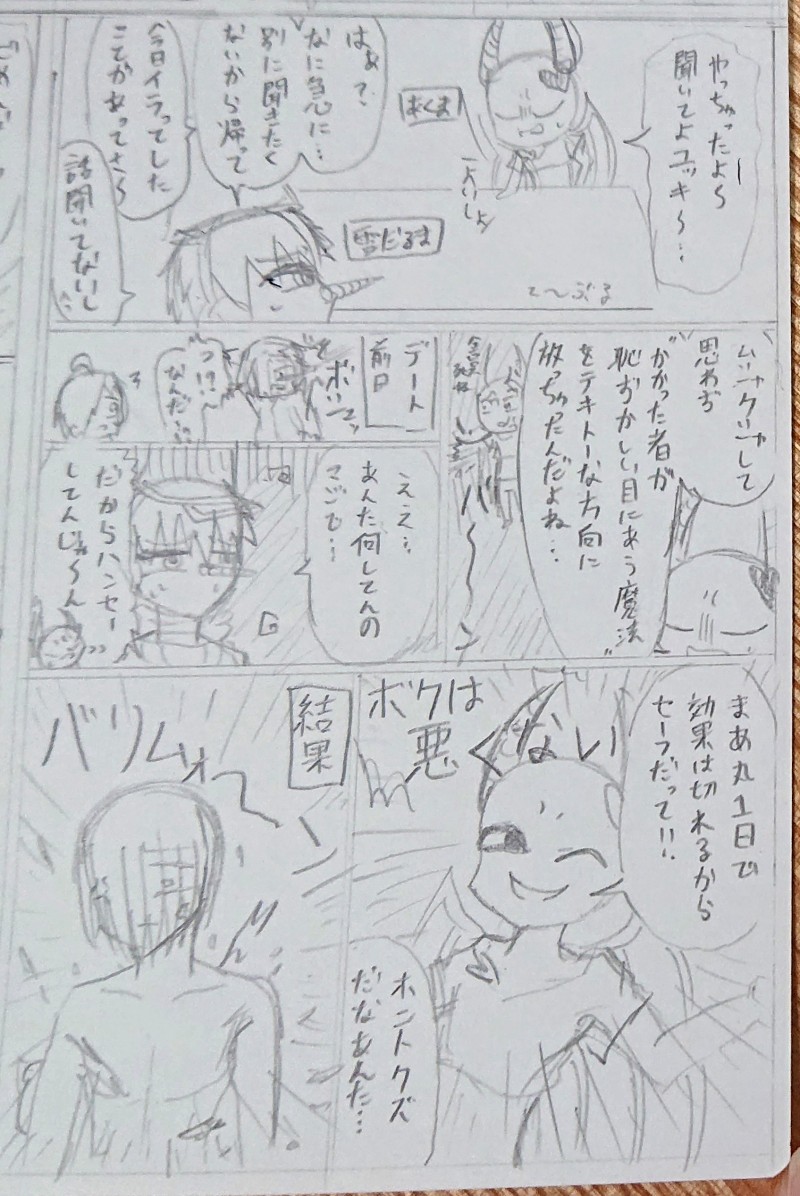 やっちゃったよ〜
聞いてよユッキ〜…
あくま
よいしょ
て〜ぶる
はぁ?
なに急に…
別に聞きたく
ないから帰って
今日イラってした
ことがあってさ〜
話聞いてないし
雪だるま
ムシャクシャして
思わず
"かかった者が
恥ずかしい目にあう魔法"
をテキトーな方向に
放っちゃったんだよね…
バ〜〜ン
デート
前日
ボーン
つ!?
なんだ…
ええ…
あんた何してんの
マジで…
だからハンセー
してんじゃ〜ん
まあ丸1日で
効果は切れるから
セーフだって!!
ボクは
悪くない
ホントクズ
だなあんた…
結果
バリムォーーン